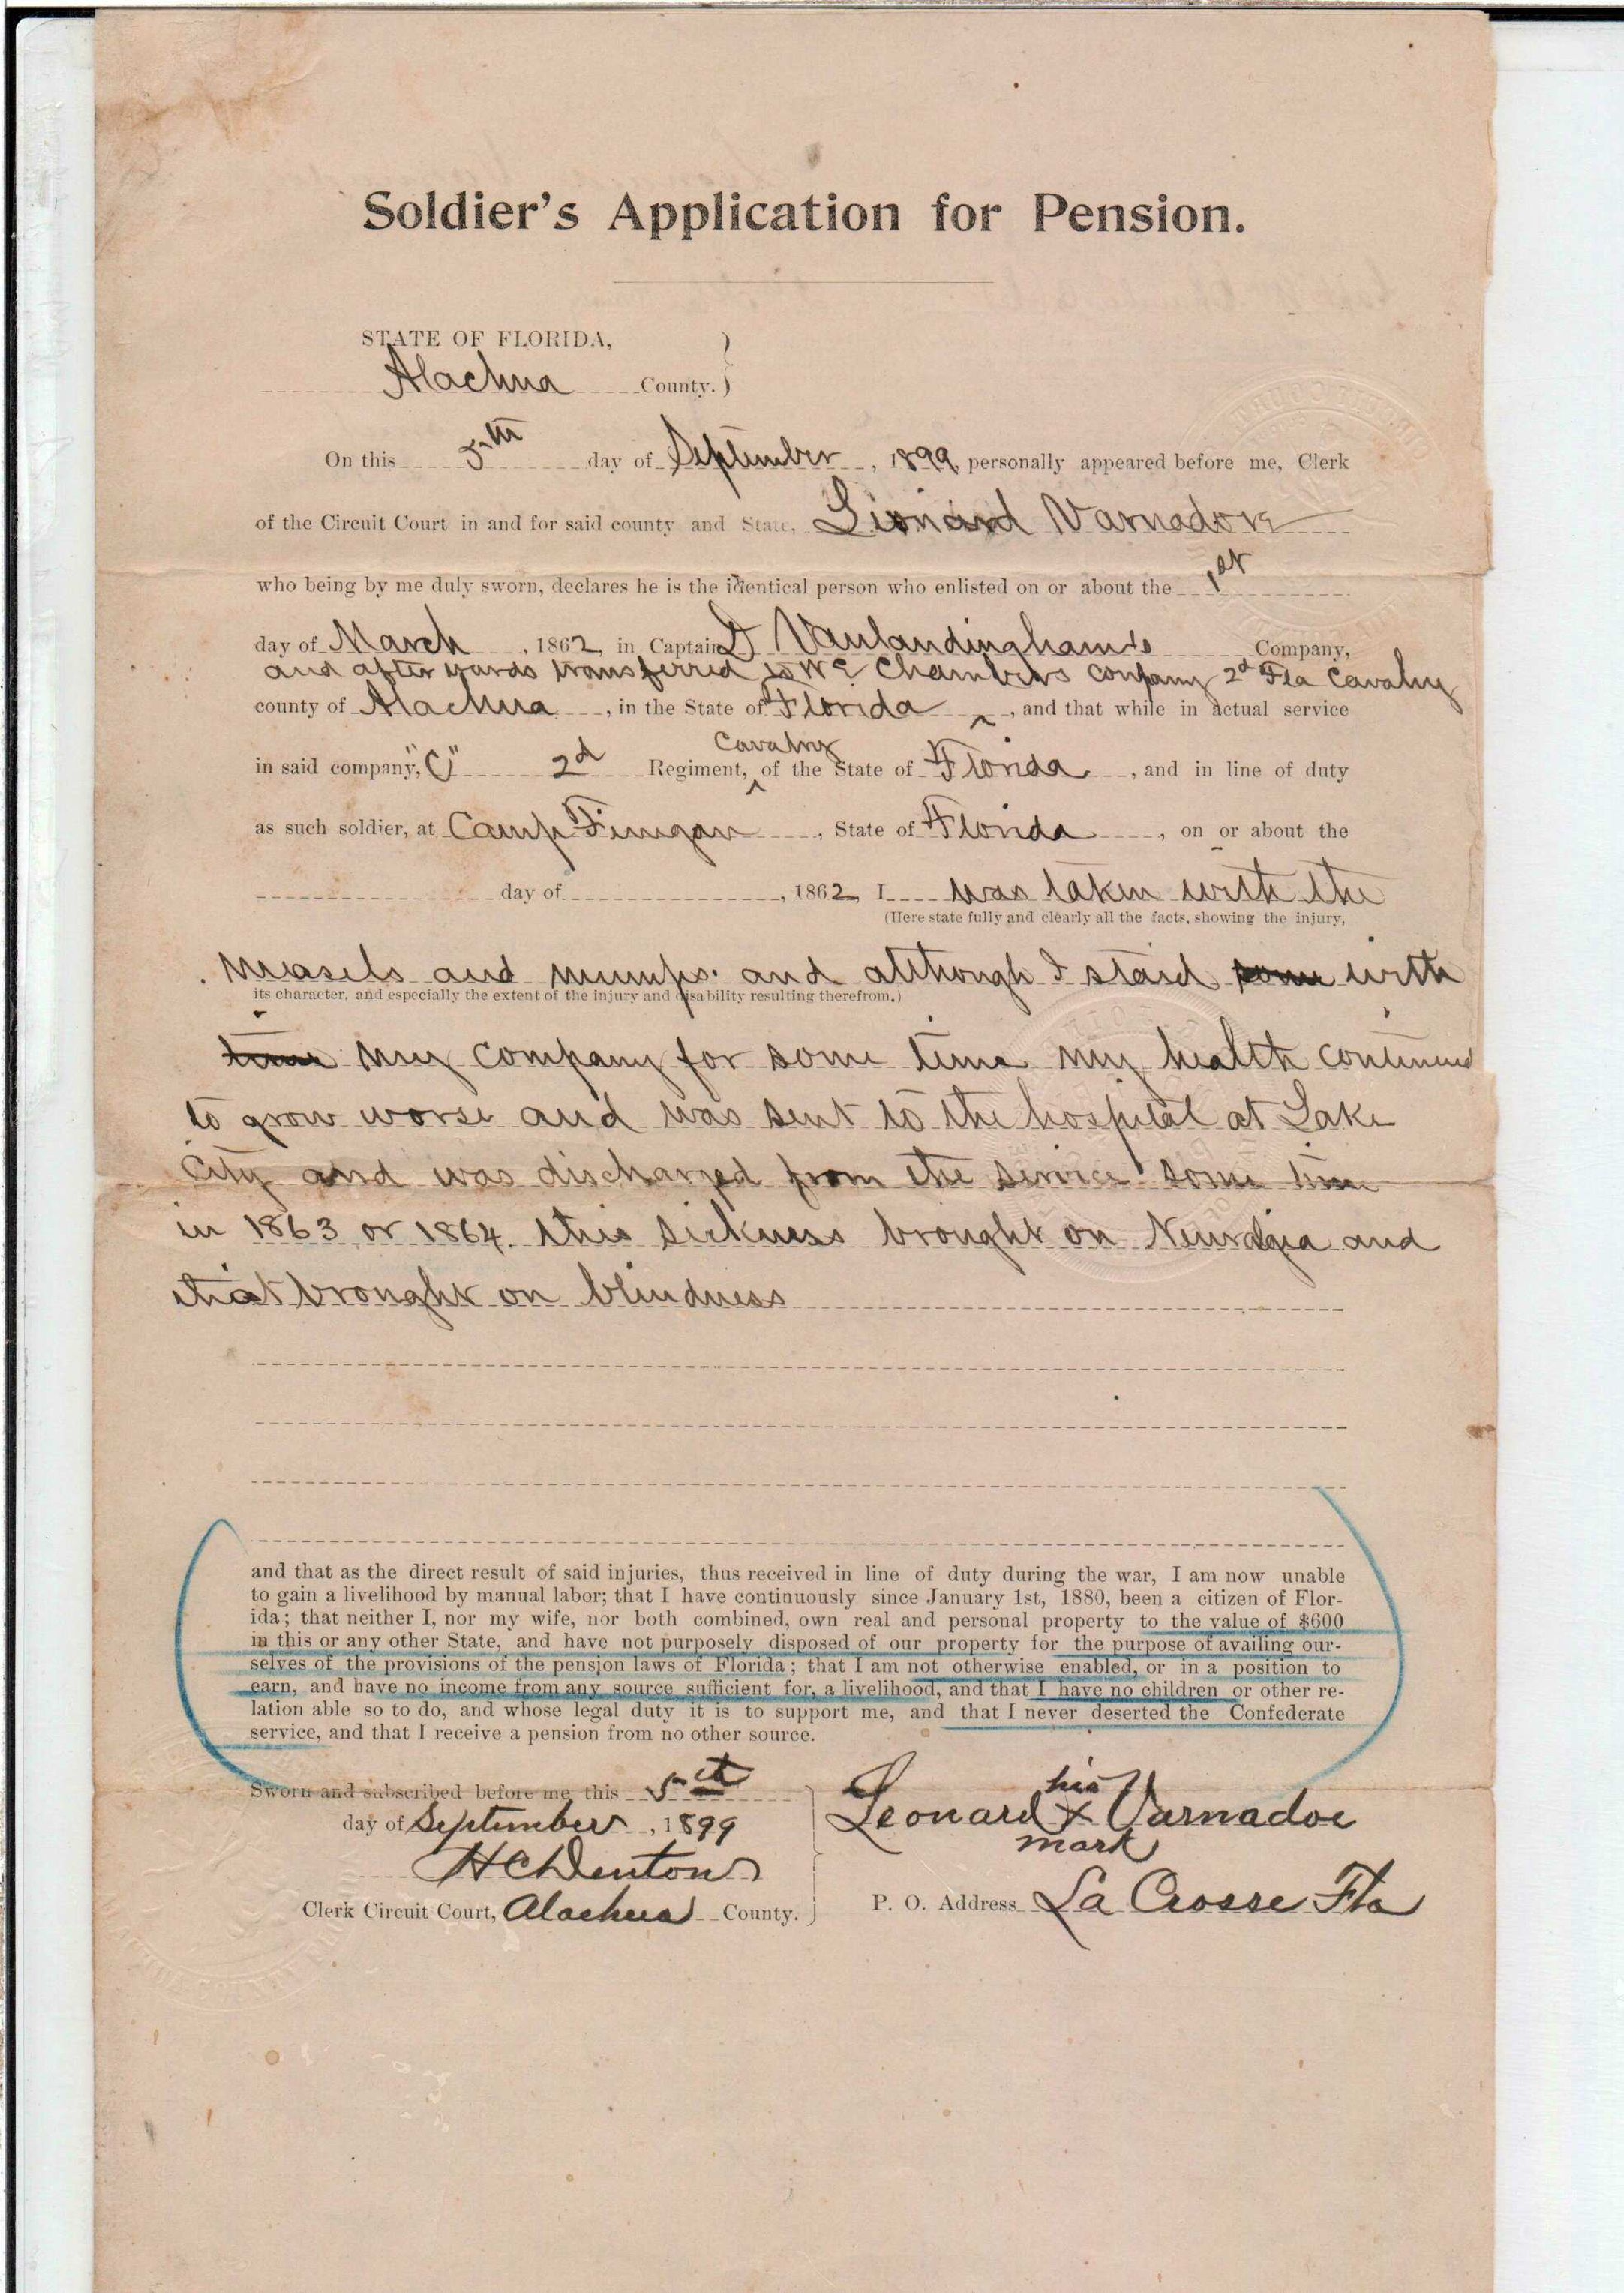 Soldier's Application for Pension.
STATE OF FLORIDA,
Alachua County.
On this 5th day of September, 1899, personally appeared before me, Clerk
of the Circuit Court in and for said county and State, Leonard Varnadore
who being by me duly sworn, declares he is the identical person who enlisted on or about the 1st
day of March, 1862, in Captain D Vanlandingham's Company,
and after wards transferred to Wc Chambers Company 2d Fla Cavalry
county of Alachua, in the State of Florida ^, and that while in actual service
Cavalry
in said company, "C" 2d Regiment, ^ of the State of Florida, and in line of duty
as such soldier, at Camp Finigan, State of Florida, on or about the
day of , 1862, I was taken with the
(Here state fully and clearly all the facts, showing the injury,
Measels and mumps. and although I staid some with
its character, and especially the extent of the injury and disability resulting therefrom.)
time my company for some time my health continued
to grow worse and was sent to the hospital at Lake
City and was discharged from the service some time
in 1863 or 1864. this sickness brought on Neuralgia and
that brought on blindness
and that as the direct result of said injuries, thus received in line of duty during the war, I am now unable
to gain a livelihood by manual labor; that I have continuously since January 1st, 1880, been a citizen of Flor-
ida; that neither I, nor my wife, nor both combined, own real and personal property to the value of $600
in this or any other State, and have not purposely disposed of our property for the purpose of availing our-
selves of the provisions of the pension laws of Florida; that I am not otherwise enabled, or in a position to
earn, and have no income from any source sufficient for, a livelihood, and that I have no children or other re-
lation able so to do, and whose legal duty it is to support me, and that I never deserted the Confederate
service, and that I receive a pension from no other source.
Sworn and subscribed before me this 5th
day of September, 1899
H C Denton
Clerk Circuit Court, Alachua County.
his
Leonard X Varnadoe
mark
P. O. Address La Crosse Fla